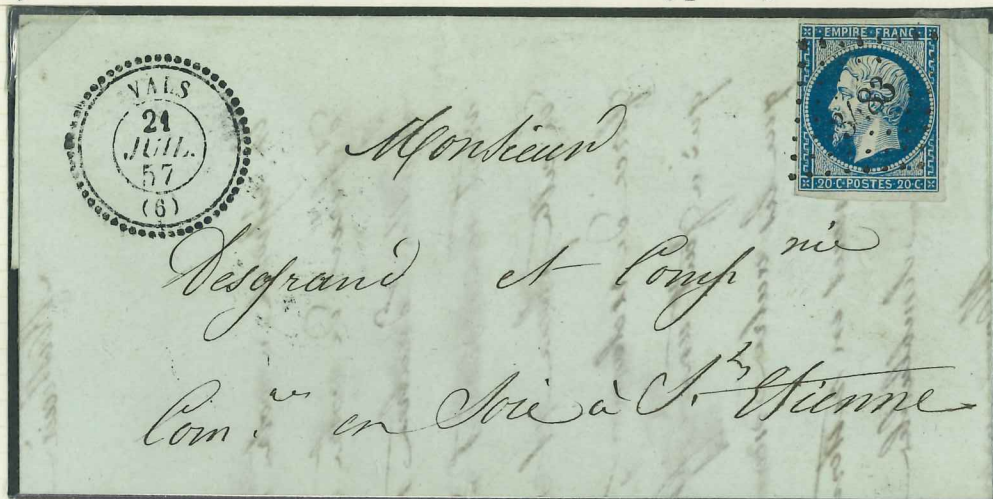 VALS
21
JUIL.
57
(6)
EMPIRE FRANC
20·C·POSTES·20·C·
Monsieur
Desgrand et Comp nie
Com. res en Soie à St Etienne